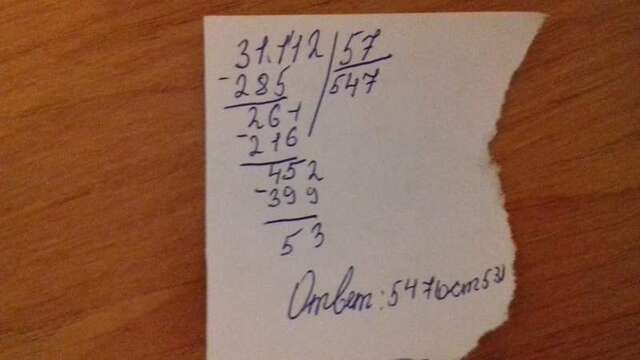 31.112 57
-285 547
261
-216
452
-399
53
Ответ: 547(ост 53)